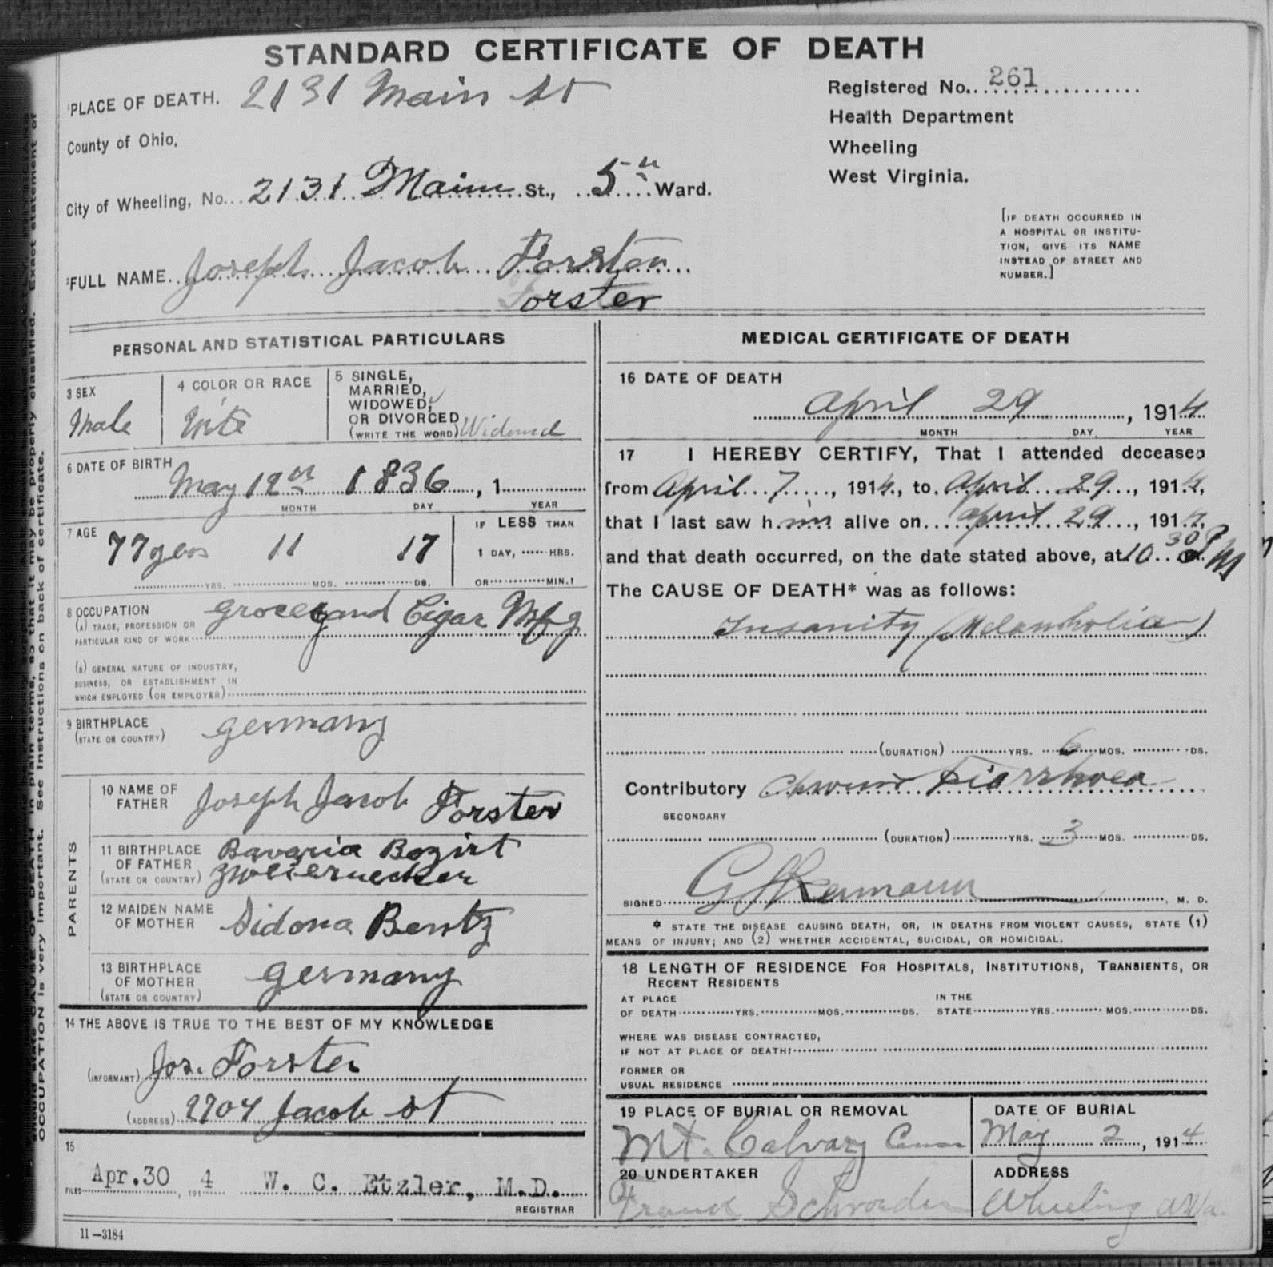 STANDARD CERTIFICATE OF DEATH
PLACE OF DEATH. 2131 Main St
Registered No. 261
County of Ohio,
Health Department
Wheeling
West Virginia.
City of Wheeling, No. 2131 Main St., 5th Ward.
[IF DEATH OCCURRED IN
A HOSPITAL OR INSTITU-
TION, GIVE ITS NAME
INSTEAD OF STREET AND
NUMBER.]
FULL NAME Joseph Jacob Forster
Forster
PERSONAL AND STATISTICAL PARTICULARS
3 SEX
Male
4 COLOR OR RACE
5 SINGLE,
MARRIED,
WIDOWED,
OR DIVORCED
(WRITE THE WORD) Widowed
6 DATE OF BIRTH
May 12th 1836, 1
MONTH DAY YEAR
7 AGE
77 11 17
YRS. MOS. DS.
IF LESS THAN
1 DAY, HRS.
OR MIN.?
8 OCCUPATION
(a) TRADE, PROFESSION OR
PARTICULAR KIND OF WORK
Grocery and Cigar Mfg
(b) GENERAL NATURE OF INDUSTRY,
BUSINESS, OR ESTABLISHMENT IN
WHICH EMPLOYED (OR EMPLOYER)
9 BIRTHPLACE
(STATE OR COUNTRY)
Germany
PARENTS
10 NAME OF
FATHER
Joseph Jacob Forster
11 BIRTHPLACE
OF FATHER
(STATE OR COUNTRY)
Bavaria Bezirt
12 MAIDEN NAME
OF MOTHER
Sidona Bentz
13 BIRTHPLACE
OF MOTHER
(STATE OR COUNTRY)
Germany
14 THE ABOVE IS TRUE TO THE BEST OF MY KNOWLEDGE
(INFORMANT) Jos. Forster
(ADDRESS) 2704 Jacob St
15
FILED Apr. 30, 1914 W. C. Etzler, M.D.
REGISTRAR
11-3184
MEDICAL CERTIFICATE OF DEATH
16 DATE OF DEATH
April 29, 1914
MONTH DAY YEAR
17 I HEREBY CERTIFY, That I attended deceased
from April 7, 1914, to April 29, 1914,
that I last saw him alive on April 29, 191
and that death occurred, on the date stated above, at 10.30 PM
The CAUSE OF DEATH* was as follows:
Insanity (Melancholia)
(DURATION) YRS. 6 MOS. DS.
Contributory Diarrhoea
SECONDARY
(DURATION) YRS. 3 MOS. DS.
SIGNED M. D.
* STATE THE DISEASE CAUSING DEATH, OR, IN DEATHS FROM VIOLENT CAUSES, STATE (1)
MEANS OF INJURY; AND (2) WHETHER ACCIDENTAL, SUICIDAL, OR HOMICIDAL.
18 LENGTH OF RESIDENCE FOR HOSPITALS, INSTITUTIONS, TRANSIENTS, OR
RECENT RESIDENTS
AT PLACE
OF DEATH YRS. MOS. DS.
IN THE
STATE YRS. MOS. DS.
WHERE WAS DISEASE CONTRACTED,
IF NOT AT PLACE OF DEATH?
FORMER OR
USUAL RESIDENCE
19 PLACE OF BURIAL OR REMOVAL
Mt. Calvary
DATE OF BURIAL
May 2, 1914
20 UNDERTAKER
Frank Schroeder
ADDRESS
Wheeling W.Va.
OCCUPATION is very important. See instructions on back of certificate.